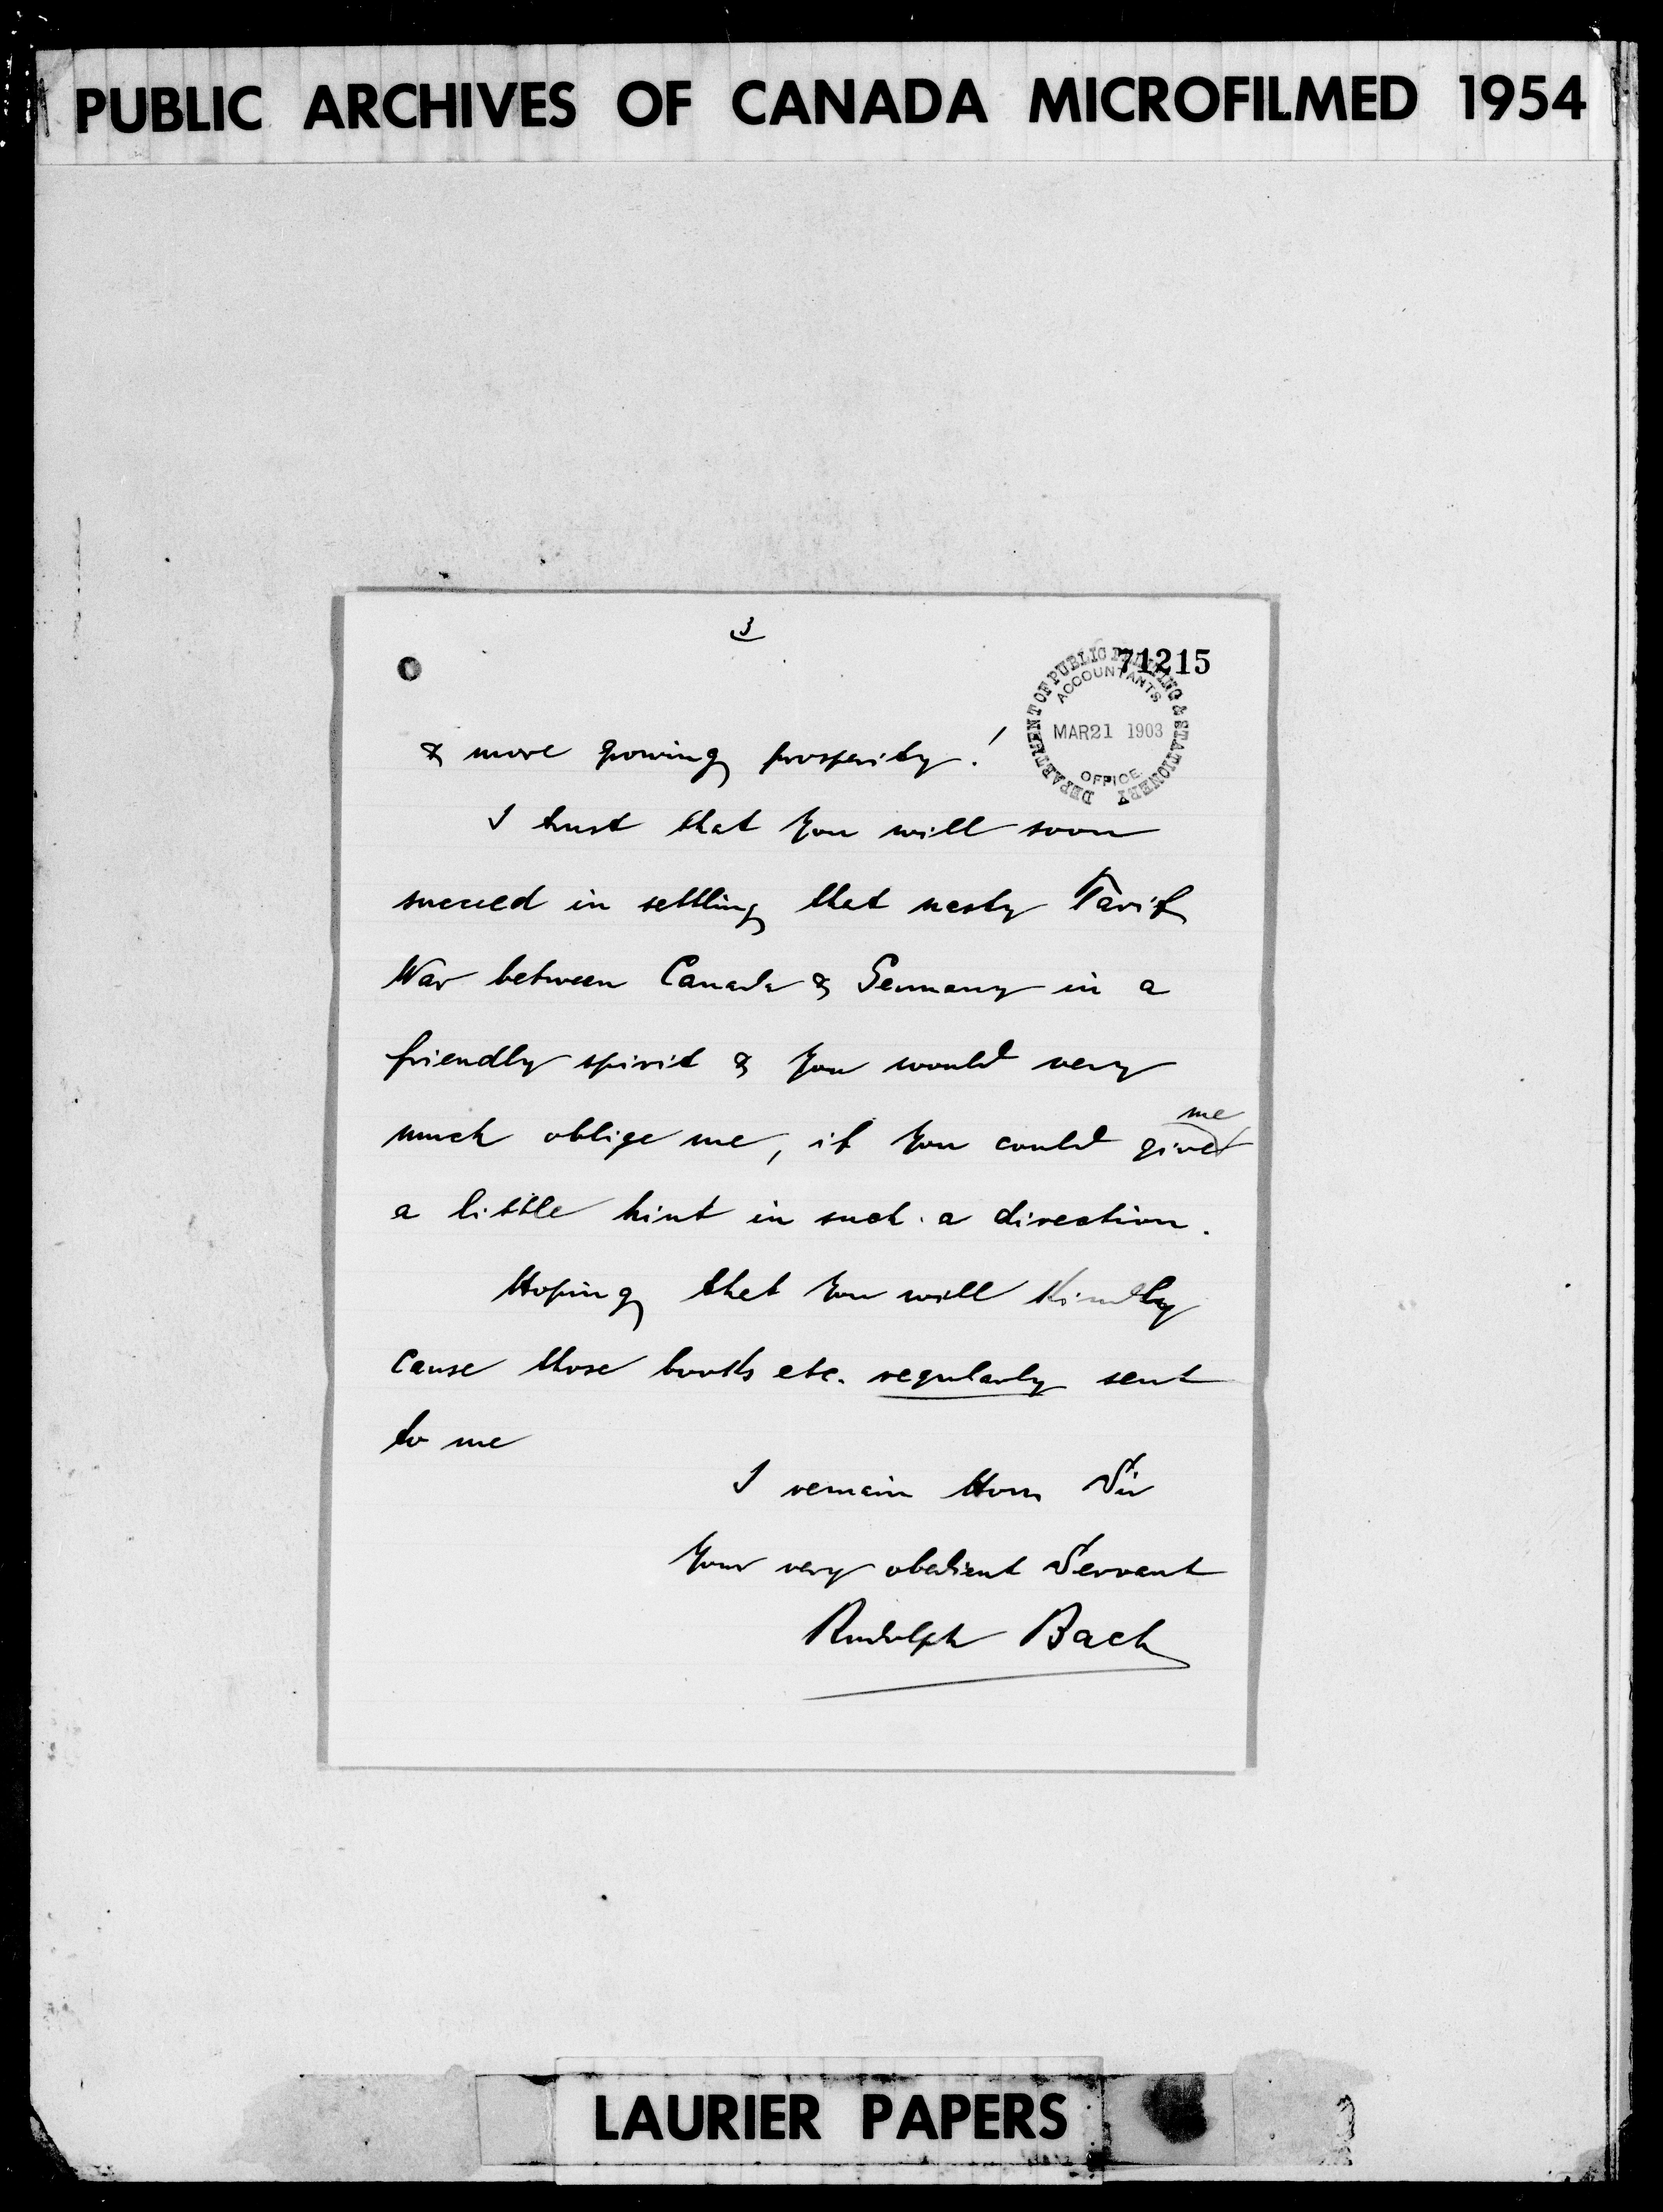 PUBLIC ARCHIVES OF CANADA MICROFILMED 1954
3
71215
DEPARTMENT OF PUBLIC PRINTING & STATIONERY
ACCOUNTANTS
MAR 21 1903
OFFICE.
& more growing prosperity!
I trust that you will soon
succeed in settling that nasty Tarif
War between Canada & Germany in a
friendly spirit & you would very
me
much oblige me, if you could give
a little hint in such a direction.
Hoping that you will kindly
cause those books etc. regularly sent
to me
I remain Hon Sir
Your very obedient Servant
Rudolph Bach
LAURIER PAPERS